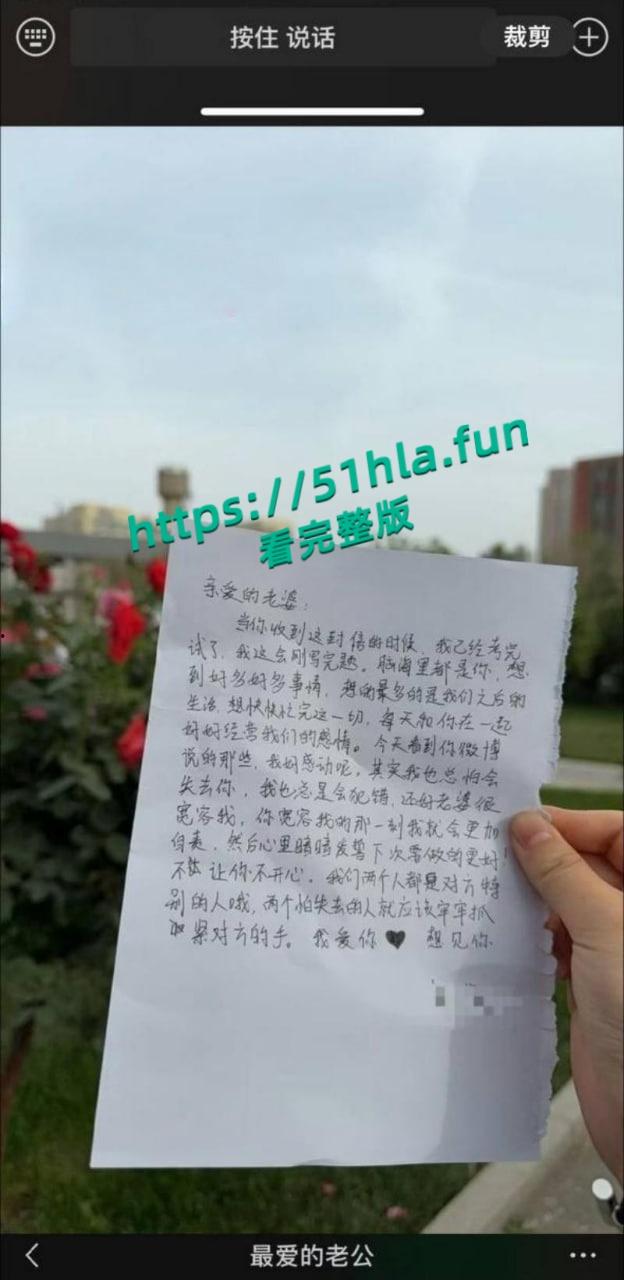 按住 说话
裁剪
https://51hla.fun
看完整版
亲爱的老婆：
当你收到这封信的时候，我已经考完
试了，我这会刚写完题。脑海里都是你，想
到好多好多事情，想的最多的是我们之后的
生活，想快快忙完这一切，每天和你在一起
好好经营我们的感情。今天看到你微博
说的那些，我好感动呢，其实我也总怕会
失去你，我也总是会犯错，还好老婆很
宽容我，你宽容我的那一刻我就会更加
自责，然后心里暗暗发誓下次要做的更好！
不能让你不开心。我们两个人都是对方特
别的人哦，两个怕失去的人就应该牢牢抓
紧对方的手。我爱你 想见你
最爱的老公